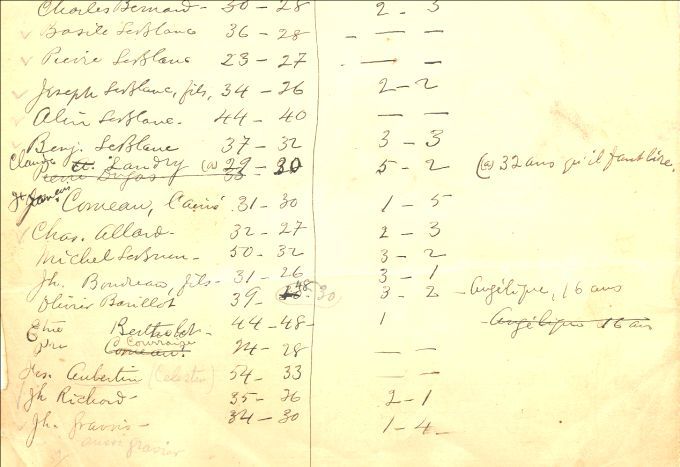 Charles Bernard - 30 - 28 2 - 3
Basile LeBlanc 36 - 28 - — —
Pierre LeBlanc 23 - 27 - — —
Joseph LeBlanc, fils, 34 - 26 2 - 2
Alin LeBlanc - 44 - 40 — —
Benj. LeBlanc 37 - 32 3 - 3
Claude Landry (a) 29 - 30 5 - 2 (a) 32 ans qu'il faut lire.
Comeau, 31 - 30 1 - 5
Chas. Allard - 32 - 27 2 - 3
Michel LeBrun - 50 - 32 3 - 2
Jh. Boudreau, fils - 31 - 26 3 - 1
Olivier Barillot 39 - 48 (30) 3 - 2 - Angélique, 16 ans
Berthelot - 44 - 48 - 1 - Angélique 16 ans
Comeau. 24 - 28 — —
Aubertin (Celestin) 54 - 33 — —
Jh Richard - 35 - 26 2 - 1
Jh. Gravois - 34 - 30 1 - 4 -